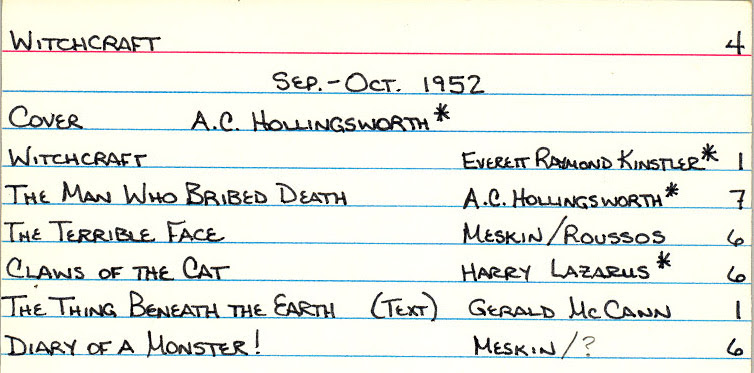 WITCHCRAFT 4
SEP.-OCT. 1952
COVER A.C. HOLLINGSWORTH*
WITCHCRAFT EVERETT RAYMOND KINSTLER* 1
THE MAN WHO BRIBED DEATH A.C. HOLLINGSWORTH* 7
THE TERRIBLE FACE MESKIN/ROUSSOS 6
CLAWS OF THE CAT HARRY LAZARUS* 6
THE THING BENEATH THE EARTH (TEXT) GERALD MCCANN 1
DIARY OF A MONSTER! MESKIN/? 6